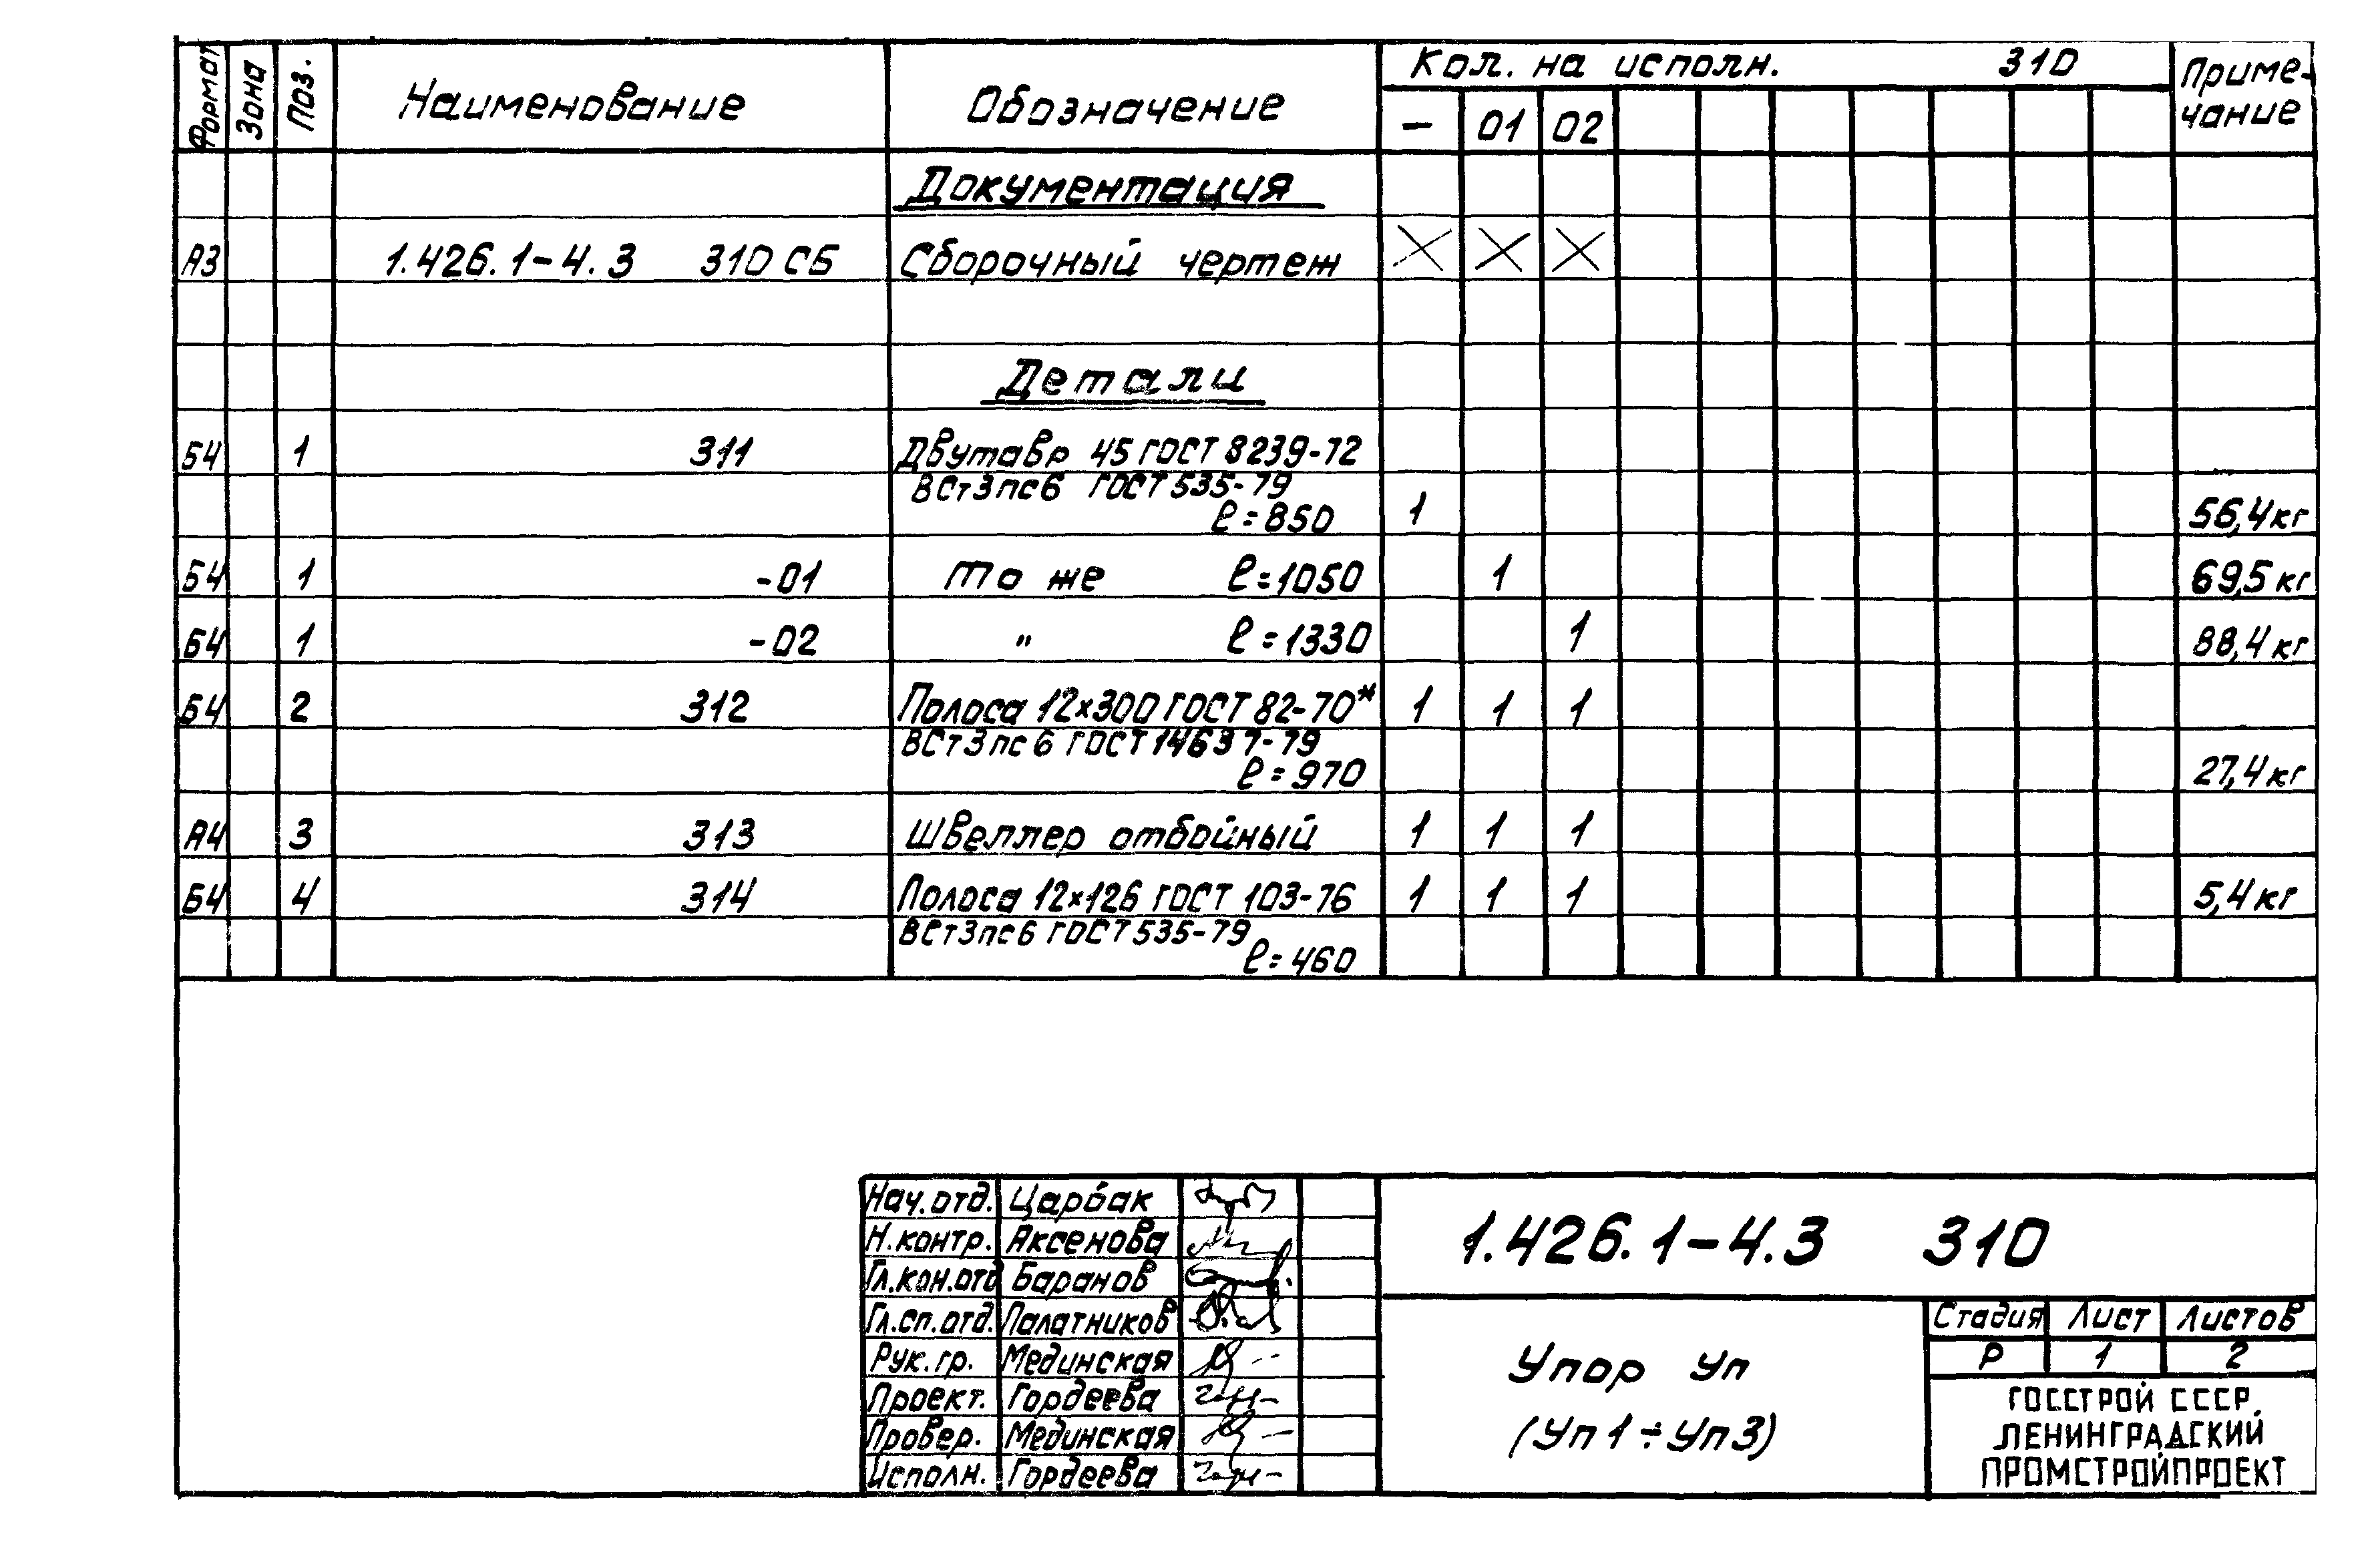 Формат Зона Поз. Наименование Обозначение Кол. на исполн. 310 Приме-
чание
– 01 02
Документация
А3 1.426.1-4.3 310 СБ Сборочный чертеж
Детали
Б4 1 311 Двутавр 45 ГОСТ 8239-72
ВСт3пс6 ГОСТ 535-79
ℓ=850 1 56,4кг
Б4 1 -01 То же ℓ=1050 1 69,5кг
Б4 1 -02 " ℓ=1330 1 88,4кг
Б4 2 312 Полоса 12×300 ГОСТ 82-70* 1 1 1
ВСт3пс6 ГОСТ 14637-79
ℓ=970 27,4кг
А4 3 313 Швеллер отбойный 1 1 1
Б4 4 314 Полоса 12×126 ГОСТ 103-76 1 1 1 5,4кг
ВСт3пс6 ГОСТ 535-79
ℓ=460
Нач.отд. Царбак
Н.контр. Аксенова
Гл.кон.отд Баранов
Гл.сп.отд. Палатников
Рук.гр. Мединская
Проект. Гордеева
Провер. Мединская
Исполн. Гордеева
1.426.1-4.3 310
Упор Уп
(Уп1÷Уп3)
Стадия Лист Листов
Р 1 2
ГОССТРОЙ СССР
ЛЕНИНГРАДСКИЙ
ПРОМСТРОЙПРОЕКТ